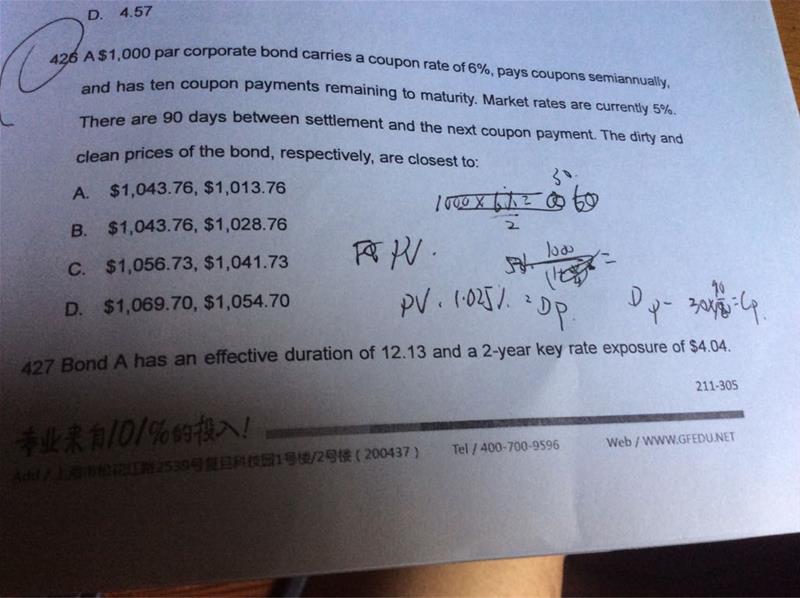 D. 4.57
426 A $1,000 par corporate bond carries a coupon rate of 6%, pays coupons semiannually,
and has ten coupon payments remaining to maturity. Market rates are currently 5%.
There are 90 days between settlement and the next coupon payment. The dirty and
clean prices of the bond, respectively, are closest to:
A. $1,043.76, $1,013.76
B. $1,043.76, $1,028.76
C. $1,056.73, $1,041.73
D. $1,069.70, $1,054.70
30.
1000 × 6% = 60
2
PV.
1000
PV. 1.025% = DP.
Dp - 30× 90 = Cp.
427 Bond A has an effective duration of 12.13 and a 2-year key rate exposure of $4.04.
211-305
专业来自101%的投入!
Add / 上海市松花江路2539号复旦科技园1号楼/2号楼 ( 200437 ) Tel / 400-700-9596 Web / WWW.GFEDU.NET